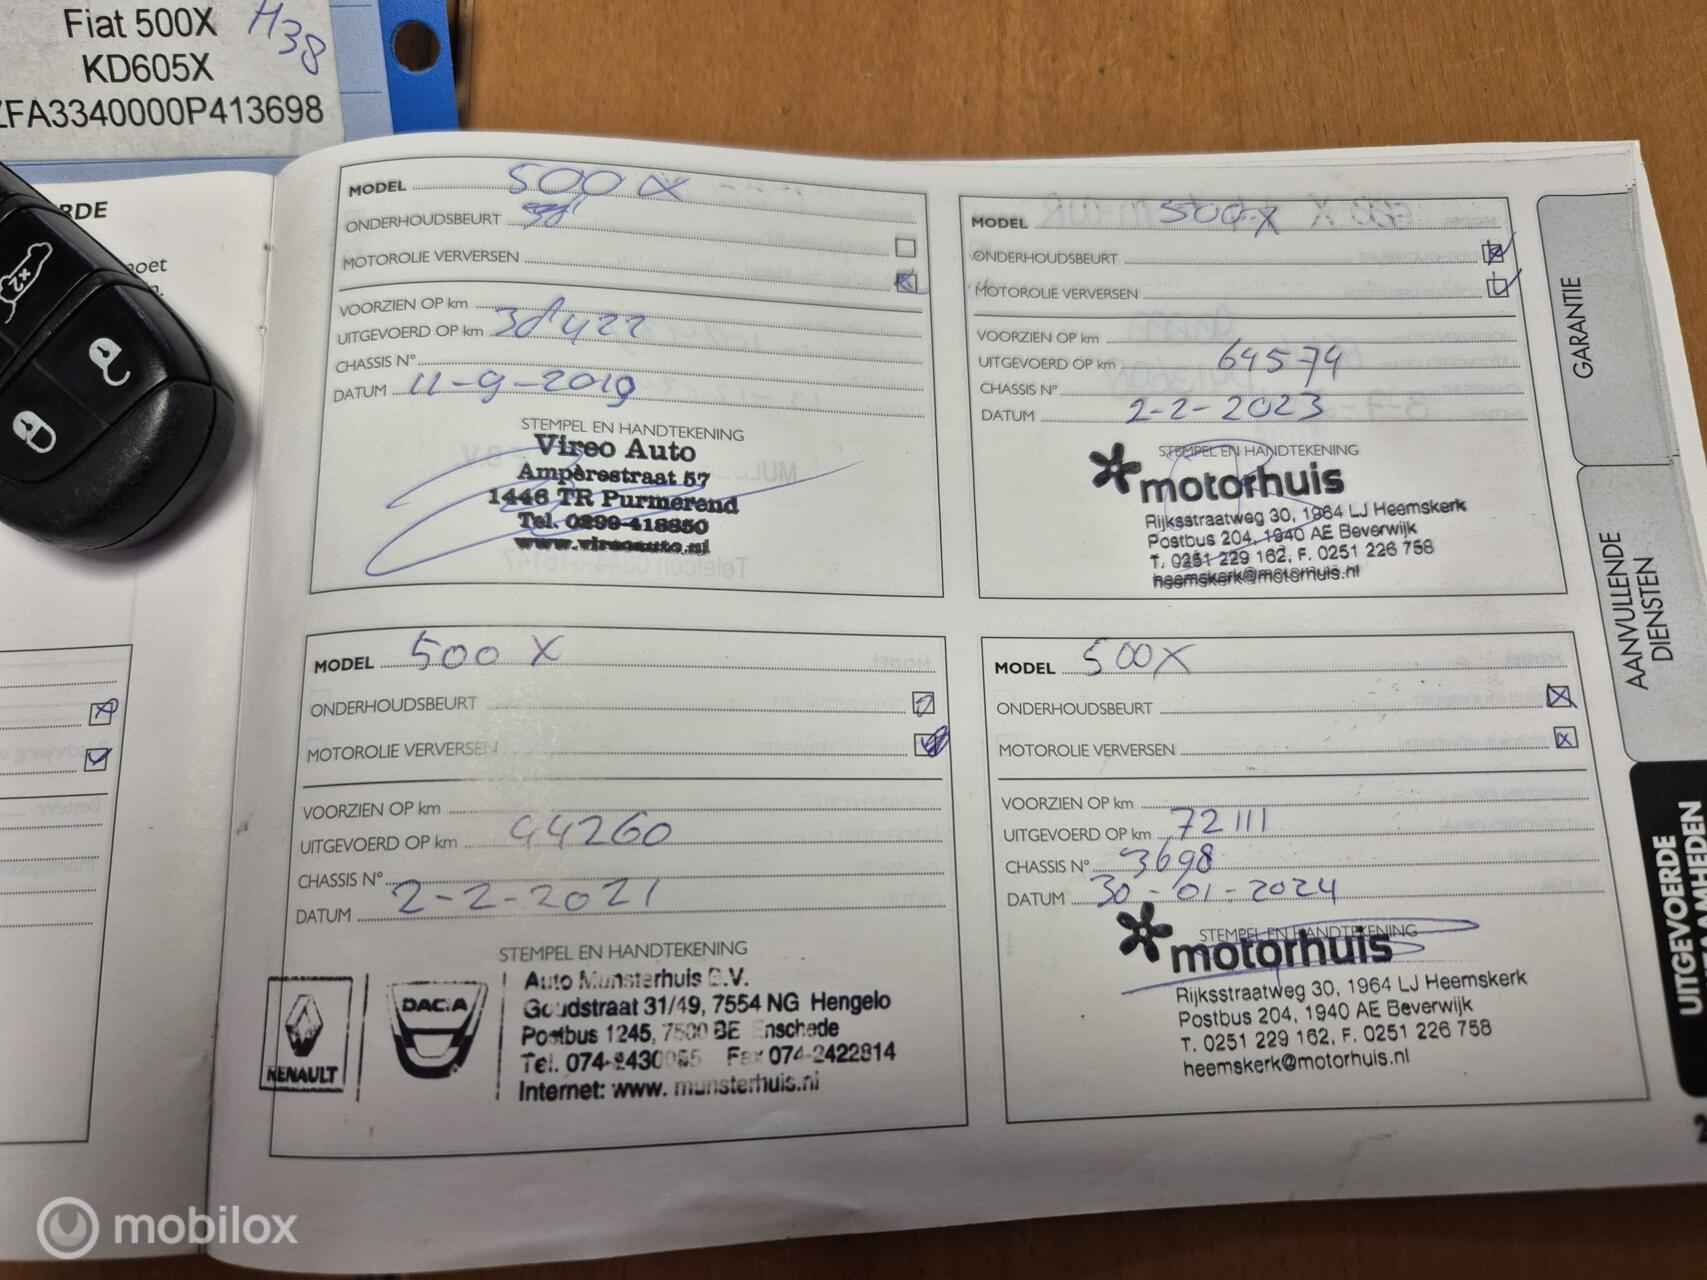 Fiat 500X H38
KD605X
ZFA3340000P413698
RDE
moet
x2
MODEL 500 X
ONDERHOUDSBEURT
MOTOROLIE VERVERSEN
VOORZIEN OP km
UITGEVOERD OP km 38422
CHASSIS N°
DATUM 11-9-2019
STEMPEL EN HANDTEKENING
Vireo Auto
Ampèrestraat 57
1446 TR Purmerend
Tel. 0299-418850
www.vireoauto.nl
MODEL 500X
ONDERHOUDSBEURT
MOTOROLIE VERVERSEN
VOORZIEN OP km
UITGEVOERD OP km 64574
CHASSIS N°
DATUM 2-2-2023
STEMPEL EN HANDTEKENING
motorhuis
Rijksstraatweg 30, 1964 LJ Heemskerk
Postbus 204, 1940 AE Beverwijk
T. 0251 229 162, F. 0251 226 758
heemskerk@motorhuis.nl
MODEL 500 X
ONDERHOUDSBEURT
MOTOROLIE VERVERSEN
VOORZIEN OP km
UITGEVOERD OP km 44260
CHASSIS N°
DATUM 2-2-2021
STEMPEL EN HANDTEKENING
RENAULT
DACIA
Auto Munsterhuis B.V.
Goudstraat 31/49, 7554 NG Hengelo
Postbus 1245, 7500 BE Enschede
Tel. Fax 074-2422814
Internet: www. munsterhuis.nl
MODEL 500X
ONDERHOUDSBEURT
MOTOROLIE VERVERSEN
VOORZIEN OP km
UITGEVOERD OP km 72111
CHASSIS N° 3698
DATUM 30-01-2024
STEMPEL EN HANDTEKENING
motorhuis
Rijksstraatweg 30, 1964 LJ Heemskerk
Postbus 204, 1940 AE Beverwijk
T. 0251 229 162, F. 0251 226 758
heemskerk@motorhuis.nl
GARANTIE
AANVULLENDE
DIENSTEN
UITGEVOERDE
mobilox